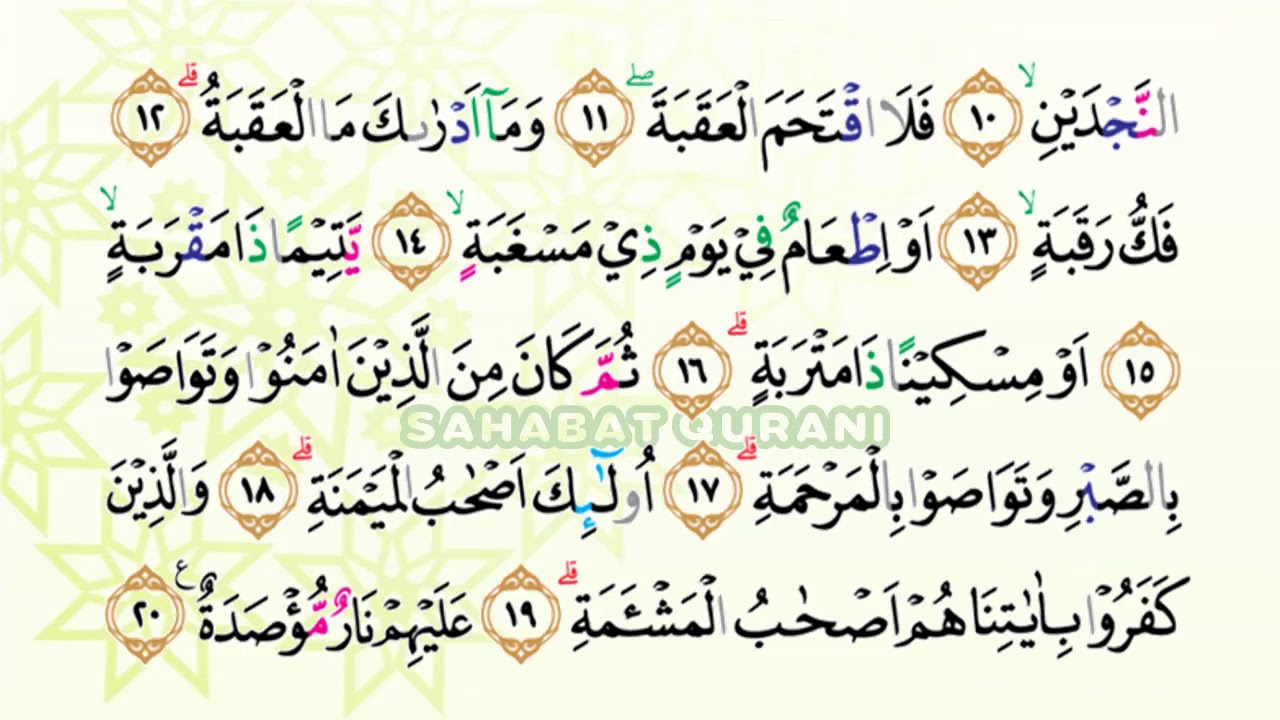 النَّجْدَيْنِۙ ١٠ فَلَا اقْتَحَمَ الْعَقَبَةَۖ ١١ وَمَآ اَدْرٰىكَ مَا الْعَقَبَةُۗ ١٢
فَكُّ رَقَبَةٍۙ ١٣ اَوْ اِطْعَامٌ فِيْ يَوْمٍ ذِيْ مَسْغَبَةٍۙ ١٤ يَّتِيْمًا ذَا مَقْرَبَةٍۙ
١٥ اَوْ مِسْكِيْنًا ذَا مَتْرَبَةٍۗ ١٦ ثُمَّ كَانَ مِنَ الَّذِيْنَ اٰمَنُوْا وَتَوَاصَوْا
SAHABAT QURANI
بِالصَّبْرِ وَتَوَاصَوْا بِالْمَرْحَمَةِۗ ١٧ اُولٰۤىِٕكَ اَصْحٰبُ الْمَيْمَنَةِۗ ١٨ وَالَّذِيْنَ
كَفَرُوْا بِاٰيٰتِنَا هُمْ اَصْحٰبُ الْمَشْـَٔمَةِۗ ١٩ عَلَيْهِمْ نَارٌ مُّؤْصَدَةٌ ࣖ ٢٠